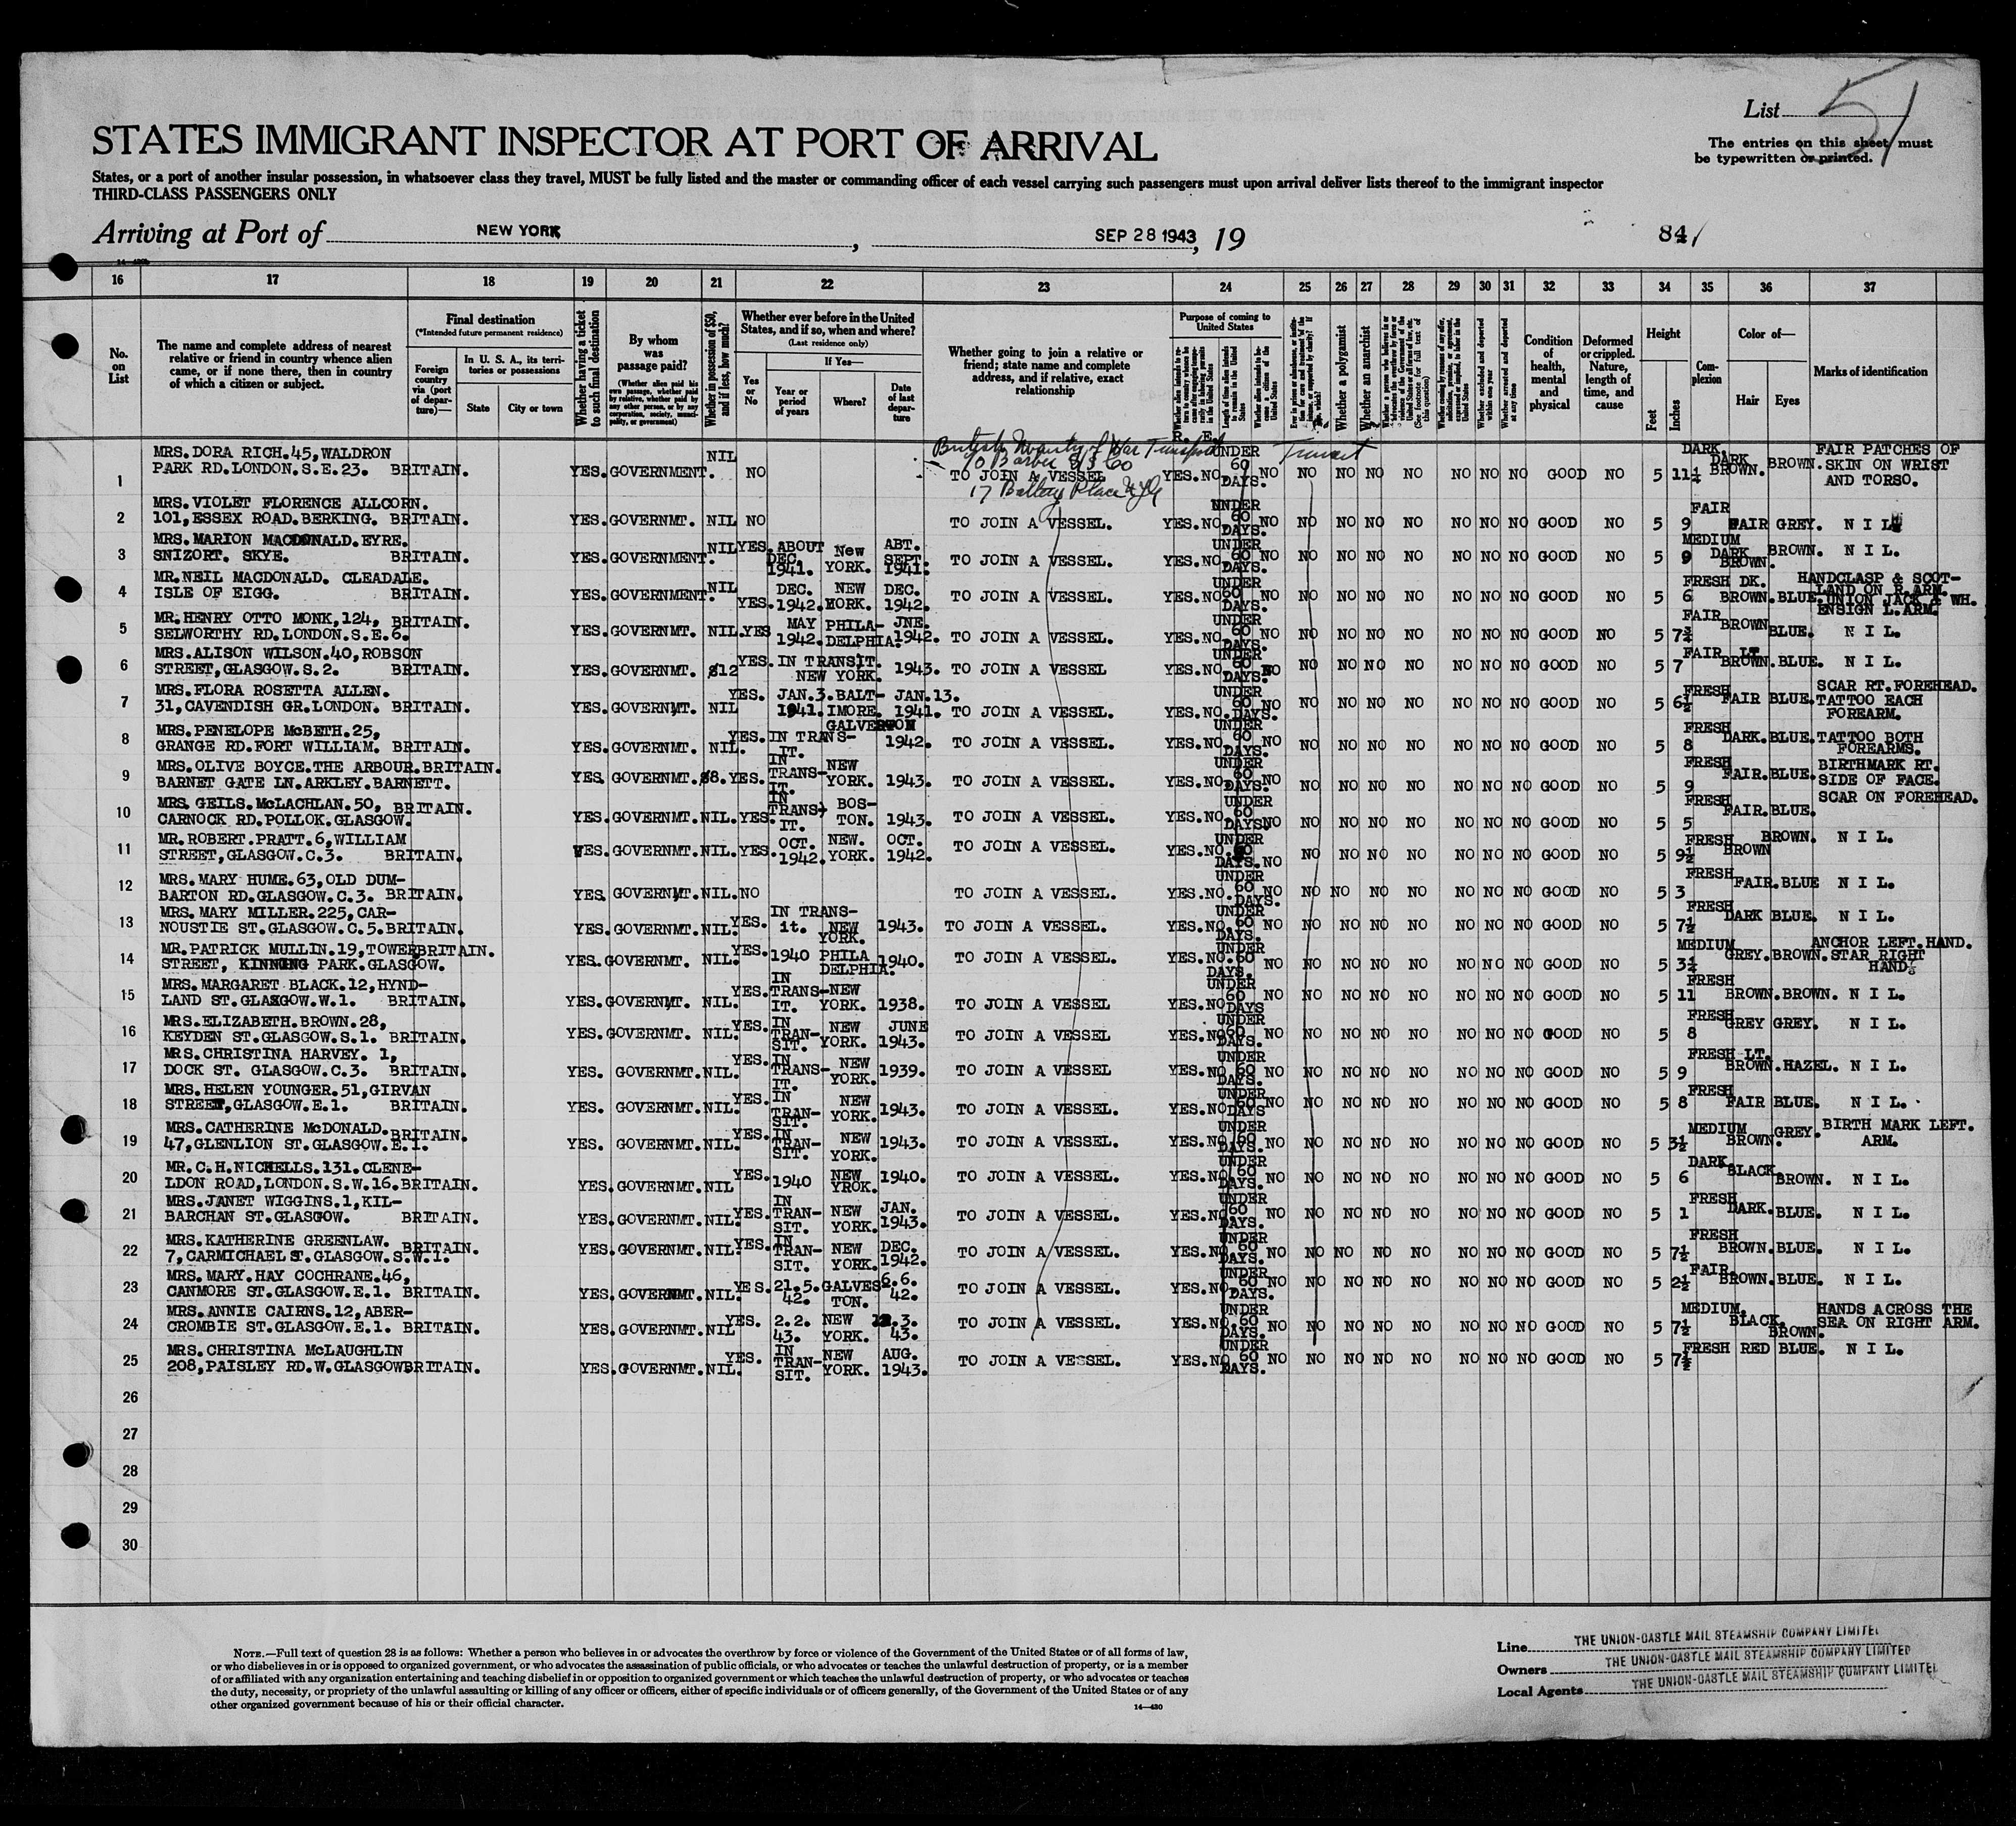 List 51
STATES IMMIGRANT INSPECTOR AT PORT OF ARRIVAL
The entries on this sheet must
be typewritten or printed.
States, or a port of another insular possession, in whatsoever class they travel, MUST be fully listed and the master or commanding officer of each vessel carrying such passengers must upon arrival deliver lists thereof to the immigrant inspector
THIRD-CLASS PASSENGERS ONLY
Arriving at Port of NEW YORK, SEP 28 1943, 19 84
16 17 18 19 20 21 22 23 24 25 26 27 28 29 30 31 32 33 34 35 36 37
No. on List
The name and complete address of nearest relative or friend in country whence alien came, or if none there, then in country of which a citizen or subject.
Final destination
(*Intended future permanent residence)
Foreign country via (port of departure)—
In U. S. A., its territories or possessions
State City or town
Whether having a ticket to such final destination
By whom was passage paid?
(Whether alien paid his own passage, whether paid by relative, whether paid by any other person, or by any corporation, society, municipality, or government)
Whether in possession of $50, and if less, how much?
Whether ever before in the United States, and if so, when and where?
(Last residence only)
Yes or No
If Yes—
Year or period of years
Where?
Date of last departure
Whether going to join a relative or friend; state name and complete address, and if relative, exact relationship
Purpose of coming to United States
Whether a polygamist
Whether an anarchist
Whether excluded and deported within one year
Whether arrested and deported at any time
Condition of health, mental and physical
Deformed or crippled. Nature, length of time, and cause
Height
Feet Inches
Complexion
Color of—
Hair Eyes
Marks of identification
British Ministry of War Transport
c/o Barber S/S Co
17 Battery Place NYC
Transit
1 MRS. DORA RICH. 45, WALDRON PARK RD. LONDON. S.E. 23. BRITAIN. YES. GOVERNMENT. NIL NO TO JOIN A VESSEL YES. NO UNDER 60 DAYS. NO NO NO NO NO NO NO NO GOOD NO 5 11½ DARK. DARK BROWN. BROWN. FAIR PATCHES OF SKIN ON WRIST AND TORSO.
2 MRS. VIOLET FLORENCE ALLCORN. 101, ESSEX ROAD. BERKING. BRITAIN. YES. GOVERNMT. NIL NO TO JOIN A VESSEL. YES. NO UNDER 60 DAYS. NO NO NO NO NO NO NO NO GOOD NO 5 9 FAIR FAIR GREY. N I L.
3 MRS. MARION MACDONALD. EYRE. SNIZORT. SKYE. BRITAIN. YES. GOVERNMENT. NIL YES. ABOUT DEC. 1941. New YORK. ABT. SEPT. 1941. TO JOIN A VESSEL. YES. NO UNDER 60 DAYS. NO NO NO NO NO NO NO NO GOOD NO 5 9 MEDIUM DARK BROWN. BROWN. N I L.
4 MR. NEIL MACDONALD. CLEADALE. ISLE OF EIGG. BRITAIN. YES. GOVERNMENT. NIL YES. DEC. 1942. NEW YORK. DEC. 1942. TO JOIN A VESSEL. YES. NO UNDER 60 DAYS. NO NO NO NO NO NO NO NO GOOD NO 5 6 FRESH DK. BROWN. BLUE. HANDCLASP & SCOTLAND ON R. ARM. UNION JACK & WH. ENSIGN L. ARM.
5 MR. HENRY OTTO MONK, 124, SELWORTHY RD. LONDON. S.E. 6. BRITAIN. YES. GOVERNMT. NIL. YES MAY 1942. PHILADELPHIA. JNE. 1942. TO JOIN A VESSEL. YES. NO UNDER 60 DAYS. NO NO NO NO NO NO NO NO GOOD NO 5 7½ FAIR BROWN BLUE. N I L.
6 MRS. ALISON WILSON. 40, ROBSON STREET, GLASGOW. S. 2. BRITAIN. YES. GOVERNMT. $12 YES. IN TRANSIT. NEW YORK. 1943. TO JOIN A VESSEL YES. NO UNDER 60 DAYS. NO NO NO NO NO NO NO NO GOOD NO 5 7 FAIR LT. BROWN. BLUE. N I L.
7 MRS. FLORA ROSETTA ALLEN. 31, CAVENDISH GR. LONDON. BRITAIN. YES. GOVERNMT. NIL YES. JAN. 3. 1941. BALTIMORE. JAN. 13. 1941. TO JOIN A VESSEL. YES. NO. UNDER 60 DAYS. NO NO NO NO NO NO NO NO GOOD NO 5 6½ FRESH FAIR BLUE. SCAR RT. FOREHEAD. TATTOO EACH FOREARM.
8 MRS. PENELOPE McBETH. 25, GRANGE RD. FORT WILLIAM. BRITAIN. YES. GOVERNMT. NIL. YES. IN TRANSIT. GALVESTON 1942. TO JOIN A VESSEL. YES. NO UNDER 60 DAYS. NO NO NO NO NO NO NO NO GOOD NO 5 8 FRESH DARK. BLUE. TATTOO BOTH FOREARMS.
9 MRS. OLIVE BOYCE. THE ARBOUR. BARNET GATE LN. ARKLEY. BARNETT. BRITAIN. YES. GOVERNMT. $8. YES. IN TRANSIT. NEW YORK. 1943. TO JOIN A VESSEL. YES. NO UNDER 60 DAYS. NO NO NO NO NO NO NO NO GOOD NO 5 9 FRESH FAIR. BLUE. BIRTHMARK RT. SIDE OF FACE.
10 MRS. GEILS. McLACHLAN. 50, CARNOCK RD. POLLOK. GLASGOW. BRITAIN. YES. GOVERNMT. NIL. YES. IN TRANSIT. BOSTON. 1943. TO JOIN A VESSEL. YES. NO UNDER 60 DAYS. NO NO NO NO NO NO NO NO GOOD NO 5 5 FRESH FAIR. BLUE. SCAR ON FOREHEAD.
11 MR. ROBERT. PRATT. 6, WILLIAM STREET, GLASGOW. C. 3. BRITAIN. YES. GOVERNMT. NIL. YES. OCT. 1942. NEW. YORK. OCT. 1942. TO JOIN A VESSEL. YES. NO. UNDER 60 DAYS. NO NO NO NO NO NO NO NO GOOD NO 5 9½ FRESH BROWN BROWN. N I L.
12 MRS. MARY HUME. 63, OLD DUMBARTON RD. GLASGOW. C. 3. BRITAIN. YES. GOVERNMT. NIL. NO TO JOIN A VESSEL. YES. NO. UNDER 60 DAYS. NO NO NO NO NO NO NO NO GOOD NO 5 3 FRESH FAIR. BLUE N I L.
13 MRS. MARY MILLER. 225, CARNOUSTIE ST. GLASGOW. C. 5. BRITAIN. YES. GOVERNMT. NIL. YES. IN TRANSit. NEW YORK. 1943. TO JOIN A VESSEL. YES. NO. UNDER 60 DAYS. NO NO NO NO NO NO NO NO GOOD NO 5 7½ FRESH DARK BLUE. N I L.
14 MR. PATRICK MULLIN. 19, TOWER STREET, KINNING PARK. GLASGOW. BRITAIN. YES. GOVERNMT. NIL. YES. 1940 PHILADELPHIA. 1940. TO JOIN A VESSEL. YES. NO. UNDER 60 DAYS. NO NO NO NO NO NO NO NO GOOD NO 5 3½ MEDIUM GREY. BROWN. ANCHOR LEFT. HAND. STAR RIGHT HAND.
15 MRS. MARGARET BLACK. 12, HYNDLAND ST. GLASGOW. W. 1. BRITAIN. YES. GOVERNMT. NIL. YES. IN TRANSIT. NEW YORK. 1938. TO JOIN A VESSEL YES. NO UNDER 60 DAYS NO NO NO NO NO NO NO NO GOOD NO 5 11 FRESH BROWN. BROWN. N I L.
16 MRS. ELIZABETH. BROWN. 28, KEYDEN ST. GLASGOW. S. 1. BRITAIN. YES. GOVERNMT. NIL. YES. IN TRANSIT. NEW YORK. JUNE 1943. TO JOIN A VESSEL YES. NO UNDER 60 DAYS. NO NO NO NO NO NO NO NO GOOD NO 5 8 FRESH GREY GREY. N I L.
17 MRS. CHRISTINA HARVEY. 1, DOCK ST. GLASGOW. C. 3. BRITAIN. YES. GOVERNMT. NIL. YES. IN TRANSIT. NEW YORK. 1939. TO JOIN A VESSEL YES. NO UNDER 60 DAYS. NO NO NO NO NO NO NO NO GOOD NO 5 9 FRESH LT. BROWN. HAZEL. N I L.
18 MRS. HELEN YOUNGER. 51, GIRVAN STREET, GLASGOW. E. 1. BRITAIN. YES. GOVERNMT. NIL. YES. IN TRANSIT. NEW YORK. 1943. TO JOIN A VESSEL. YES. NO UNDER 60 DAYS NO NO NO NO NO NO NO NO GOOD NO 5 8 FRESH FAIR BLUE. N I L.
19 MRS. CATHERINE McDONALD. 47, GLENLION ST. GLASGOW. E. 1. BRITAIN. YES. GOVERNMT. NIL. YES. IN TRANSIT. NEW YORK. 1943. TO JOIN A VESSEL. YES. NO UNDER 60 DAYS. NO NO NO NO NO NO NO NO GOOD NO 5 3½ MEDIUM BROWN. GREY. BIRTH MARK LEFT. ARM.
20 MR. C. H. NICHELLS. 131. CLENELDON ROAD, LONDON. S.W. 16. BRITAIN. YES. GOVERNMT. NIL YES. 1940 NEW YROK. 1940. TO JOIN A VESSEL. YES. NO UNDER 60 DAYS. NO NO NO NO NO NO NO NO GOOD NO 5 6 DARK BLACK. BROWN. N I L.
21 MRS. JANET WIGGINS. 1, KILBARCHAN ST. GLASGOW. BRITAIN. YES. GOVERNMT. NIL. YES. IN TRANSIT. NEW YORK. JAN. 1943. TO JOIN A VESSEL. YES. NO UNDER 60 DAYS. NO NO NO NO NO NO NO NO GOOD NO 5 1 FRESH DARK. BLUE. N I L.
22 MRS. KATHERINE GREENLAW. 7, CARMICHAEL ST. GLASGOW. S.W. 1. BRITAIN. YES. GOVERNMT. NIL. YES. IN TRANSIT. NEW YORK. DEC. 1942. TO JOIN A VESSEL. YES. NO UNDER 60 DAYS. NO NO NO NO NO NO NO NO GOOD NO 5 7½ FRESH BROWN. BLUE. N I L.
23 MRS. MARY. HAY COCHRANE. 46, CANMORE ST. GLASGOW. E. 1. BRITAIN. YES. GOVERNMT. NIL. YES. 21. 5. 42. GALVESTON. 6. 6. 42. TO JOIN A VESSEL. YES. NO UNDER 60 DAYS. NO NO NO NO NO NO NO NO GOOD NO 5 2½ FAIR BROWN. BLUE. N I L.
24 MRS. ANNIE CAIRNS. 12, ABERCROMBIE ST. GLASGOW. E. 1. BRITAIN. YES. GOVERNMT. NIL YES. 2. 2. 43. NEW YORK. 3. 43. TO JOIN A VESSEL. YES. NO. UNDER 60 DAYS. NO NO NO NO NO NO NO NO GOOD NO 5 7½ MEDIUM. BLACK. BROWN. HANDS ACROSS THE SEA ON RIGHT ARM.
25 MRS. CHRISTINA McLAUGHLIN 208, PAISLEY RD. W. GLASGOW BRITAIN. YES. GOVERNMT. NIL. YES. IN TRANSIT. NEW YORK. AUG. 1943. TO JOIN A VESSEL. YES. NO UNDER 60 DAYS. NO NO NO NO NO NO NO NO GOOD NO 5 7½ FRESH RED BLUE. N I L.
26
27
28
29
30
NOTE.—Full text of question 28 is as follows: Whether a person who believes in or advocates the overthrow by force or violence of the Government of the United States or of all forms of law,
or who disbelieves in or is opposed to organized government, or who advocates the assassination of public officials, or who advocates or teaches the unlawful destruction of property, or is a member
of or affiliated with any organization entertaining and teaching disbelief in or opposition to organized government or which teaches the unlawful destruction of property, or who advocates or teaches
the duty, necessity, or propriety of the unlawful assaulting or killing of any officer or officers, either of specific individuals or of officers generally, of the Government of the United States or of any
other organized government because of his or their official character.
14—430
Line THE UNION-CASTLE MAIL STEAMSHIP COMPANY LIMITED
Owners THE UNION-CASTLE MAIL STEAMSHIP COMPANY LIMITED
Local Agents THE UNION-CASTLE MAIL STEAMSHIP COMPANY LIMITED